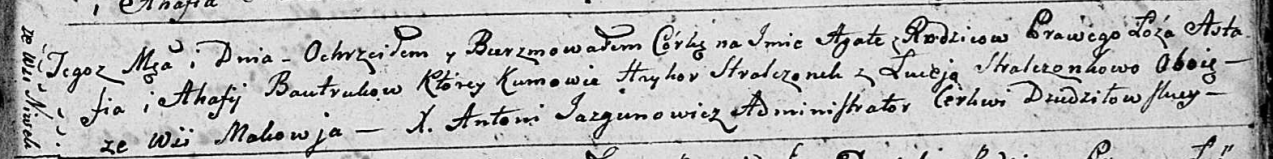 i Ahafia
ze Wsi Niwek
Tegoż Mca i Dnia - Ochrzciłem y Bierzmowałem Córkę na Imie Agatę z Rodziców Prawego Łoża Asta
fia i Ahafij Bautrukow Którey Kumowie Hryhor Stralczonek z Luceją Stralczonkowo Oboie -
ze Wsi Makowja - X. Antoni Jazgunowicz Administrator Cerkwi Dzudziłowskiey -